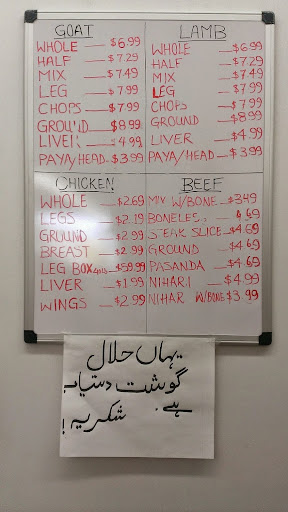 GOAT
WHOLE — $6.99
HALF — $7.29
MIX — $7.49
LEG — $7.99
CHOPS — $7.99
GROUND — $8.99
LIVER — $4.99
PAYA/HEAD — $3.99
LAMB
WHOLE — $6.99
HALF — $7.29
MIX — $7.49
LEG — $7.99
CHOPS — $7.99
GROUND — $8.99
LIVER — $4.99
PAYA/HEAD — $3.99
CHICKEN
WHOLE — $2.69
LEGS — $2.19
GROUND — $2.99
BREAST — $2.99
LEG BOX $59.99
LIVER — $1.99
WINGS — $2.99
BEEF
MIX W/BONE — $3.49
BONELESS 4.69
STEAK SLICE — $4.69
GROUND — $4.69
PASANDA — $4.69
NIHARI — $4.99
NIHAR W/BONE $3.99
یہاں حلال
گوشت دستیاب
ہے۔
شکریہ !